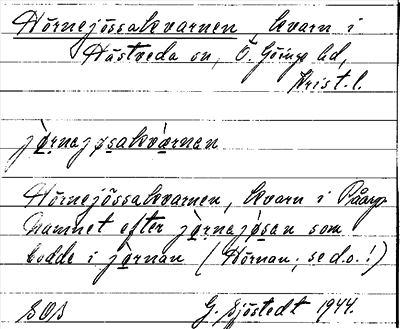 Hörnejössakvarnen, kvarn i
Hästveda sn, Ö. Göinge hd,
Krist. l.
jò̱rnajøsakvà̱rnan
Hörnejössakvarnen, kvarn i
Namnet efter jò̱rnajø̀san som
bodde i jò̱rnan (Hörnan; se d.o.!)
SOS G. Sjöstedt 1944.